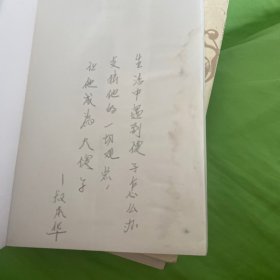 生活中遇到傻子怎么办
支持他的一切观点,
让他成为大傻子
—叔本华